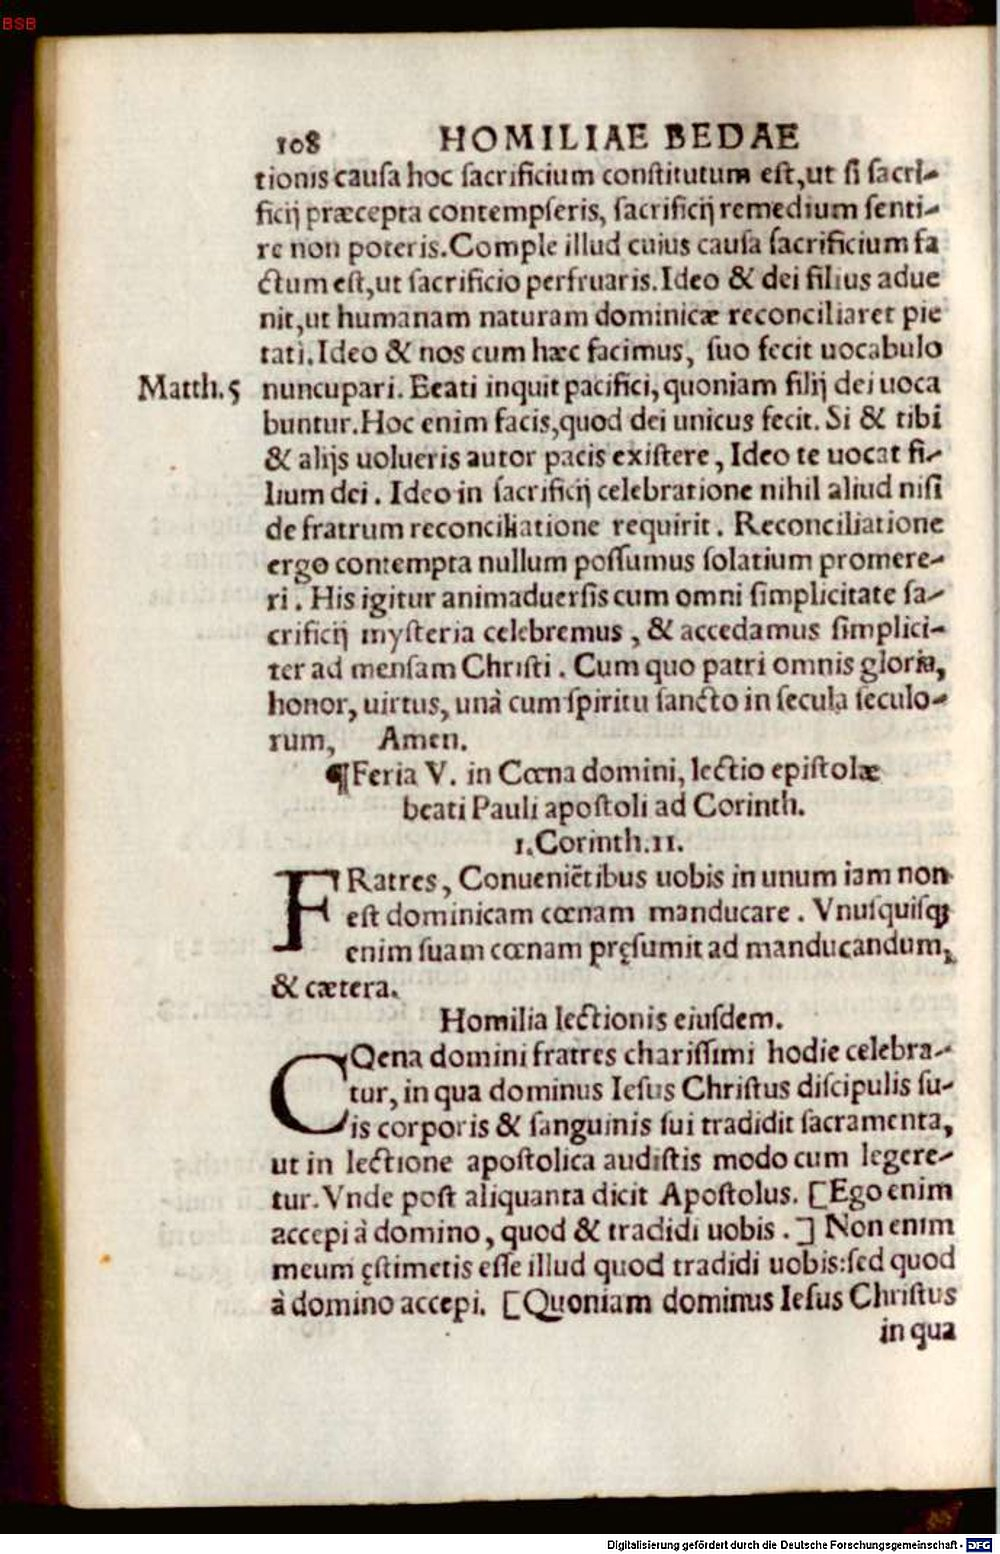 BSB
108 HOMILIAE BEDAE
tionis cauſa hoc ſacrificium conſtitutum eſt,ut ſi ſacri-
ficij præcepta contempſeris, ſacrificij remedium ſenti-
re non poteris.Comple illud cuius cauſa ſacrificium fa
ctum eſt,ut ſacrificio perfruaris.Ideo & dei filius adue
nit,ut humanam naturam dominicæ reconciliaret pie
tati.Ideo & nos cum hæc facimus, ſuo fecit uocabulo
Matth.5 nuncupari. Beati inquit pacifici,quoniam filij dei uoca
buntur.Hoc enim facis,quod dei unicus fecit. Si & tibi
& alijs uolueris autor pacis exiſtere, Ideo te uocat fi-
lium dei. Ideo in ſacrificij celebratione nihil aliud niſi
de fratrum reconciliatione requirit. Reconciliatione
ergo contempta nullum poſſumus ſolatium promere-
ri. His igitur animaduerſis cum omni ſimplicitate ſa-
crificij myſteria celebremus, & accedamus ſimplici-
ter ad menſam Chriſti. Cum quo patri omnis gloria,
honor, uirtus, unà cum ſpiritu ſancto in ſecula ſeculo-
rum, Amen.
¶Feria V. in Cœna domini, lectio epiſtolæ
beati Pauli apoſtoli ad Corinth.
1.Corinth.11.
FRatres, Conueniẽtibus uobis in unum iam non
eſt dominicam cœnam manducare. Vnuſquiſqꝫ
enim ſuam cœnam pręſumit ad manducandum,
& cætera.
Homilia lectionis eiuſdem.
COena domini fratres chariſſimi hodie celebra-
tur, in qua dominus Ieſus Chriſtus diſcipulis ſu-
is corporis & ſanguinis ſui tradidit ſacramenta,
ut in lectione apoſtolica audiſtis modo cum legere-
tur.Vnde poſt aliquanta dicit Apoſtolus. [Ego enim
accepi à domino, quod & tradidi uobis.] Non enim
meum ęſtimetis eſſe illud quod tradidi uobis:ſed quod
à domino accepi. [Quoniam dominus Ieſus Chriſtus
in qua
Digitalisierung gefördert durch die Deutsche Forschungsgemeinschaft - DFG